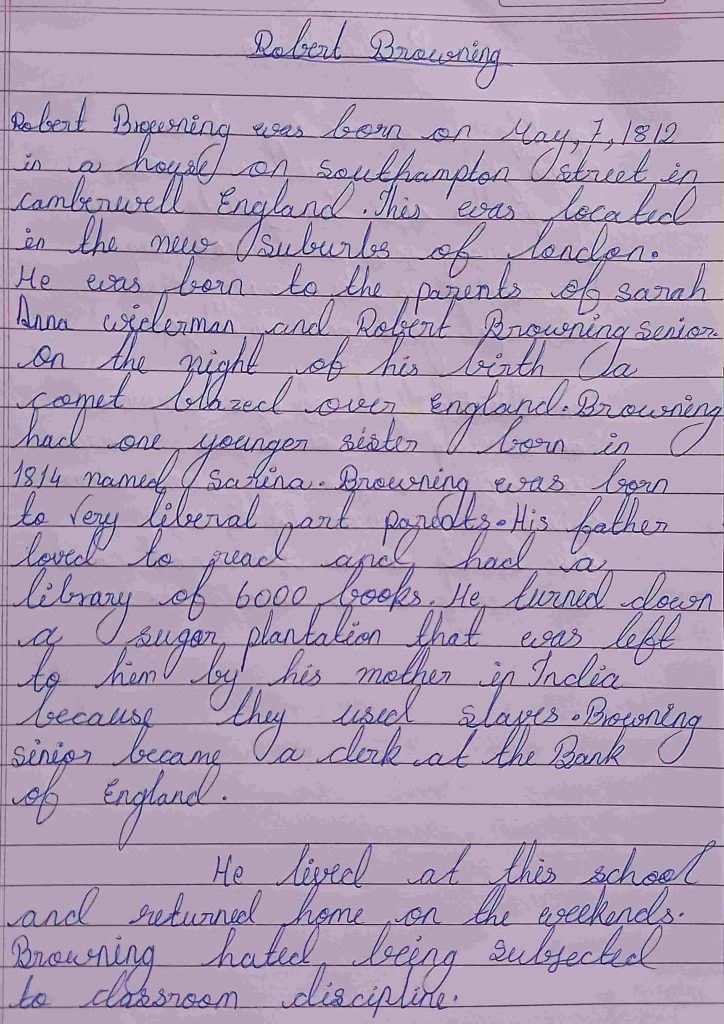 Robert Browning
Robert Browning was born on May, 7, 1812
in a house on Southampton street in
camberwell England. This was located
in the new suburbs of london.
He was born to the parents of sarah
Anna widerman and Robert Browning senior.
on the night of his birth a
comet blazed over England. Browning
had one younger sister born in
1814 named Sarina. Browning was born
to very liberal art parents. His father
loved to read and had a
library of 6000 books. He turned down
a sugar plantation that was left
to him by his mother in India
because they used slaves. Browning
sinior became a clerk at the Bank
of England.
He lived at this school
and returned home on the weekends.
Browning hated being subjected
to classroom discipline.